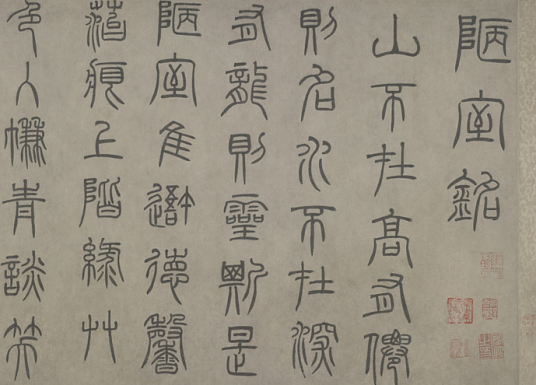 陋室銘
山不在高有僊
則名水不在深
有龍則靈斯是
陋室隹吾德馨
菭痕上階綠艸
色入㡘青談笑